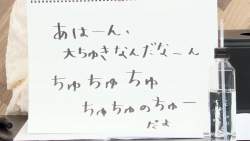 あはーん、
大ちゅきなんだなーん
ちゅちゅちゅ
ちゅちゅのちゅー
だよ